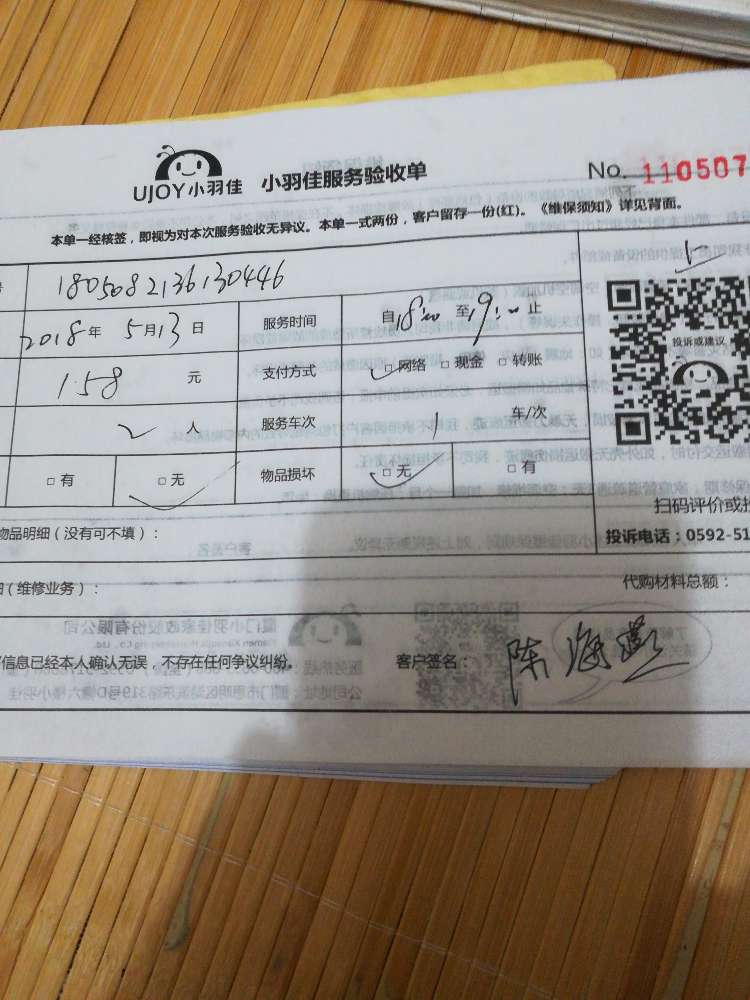 UJOY小羽佳 小羽佳服务验收单 No. 110507
本单一经核签，即视为对本次服务验收无异议。本单一式两份，客户留存一份(红)。《维保须知》详见背面。
1805082136130446
2018年 5月13日 服务时间 自18:00至19:00止
158 元 支付方式 □网络 □现金 □转账
2 人 服务车次 1 车/次
□有 □无 物品损坏 □无 □有
投诉或建议
扫码评价或投
物品明细（没有可不填）： 投诉电话：0592-51
（维修业务）： 代购材料总额：
信息已经本人确认无误，不存在任何争议纠纷。 客户签名：陈海燕